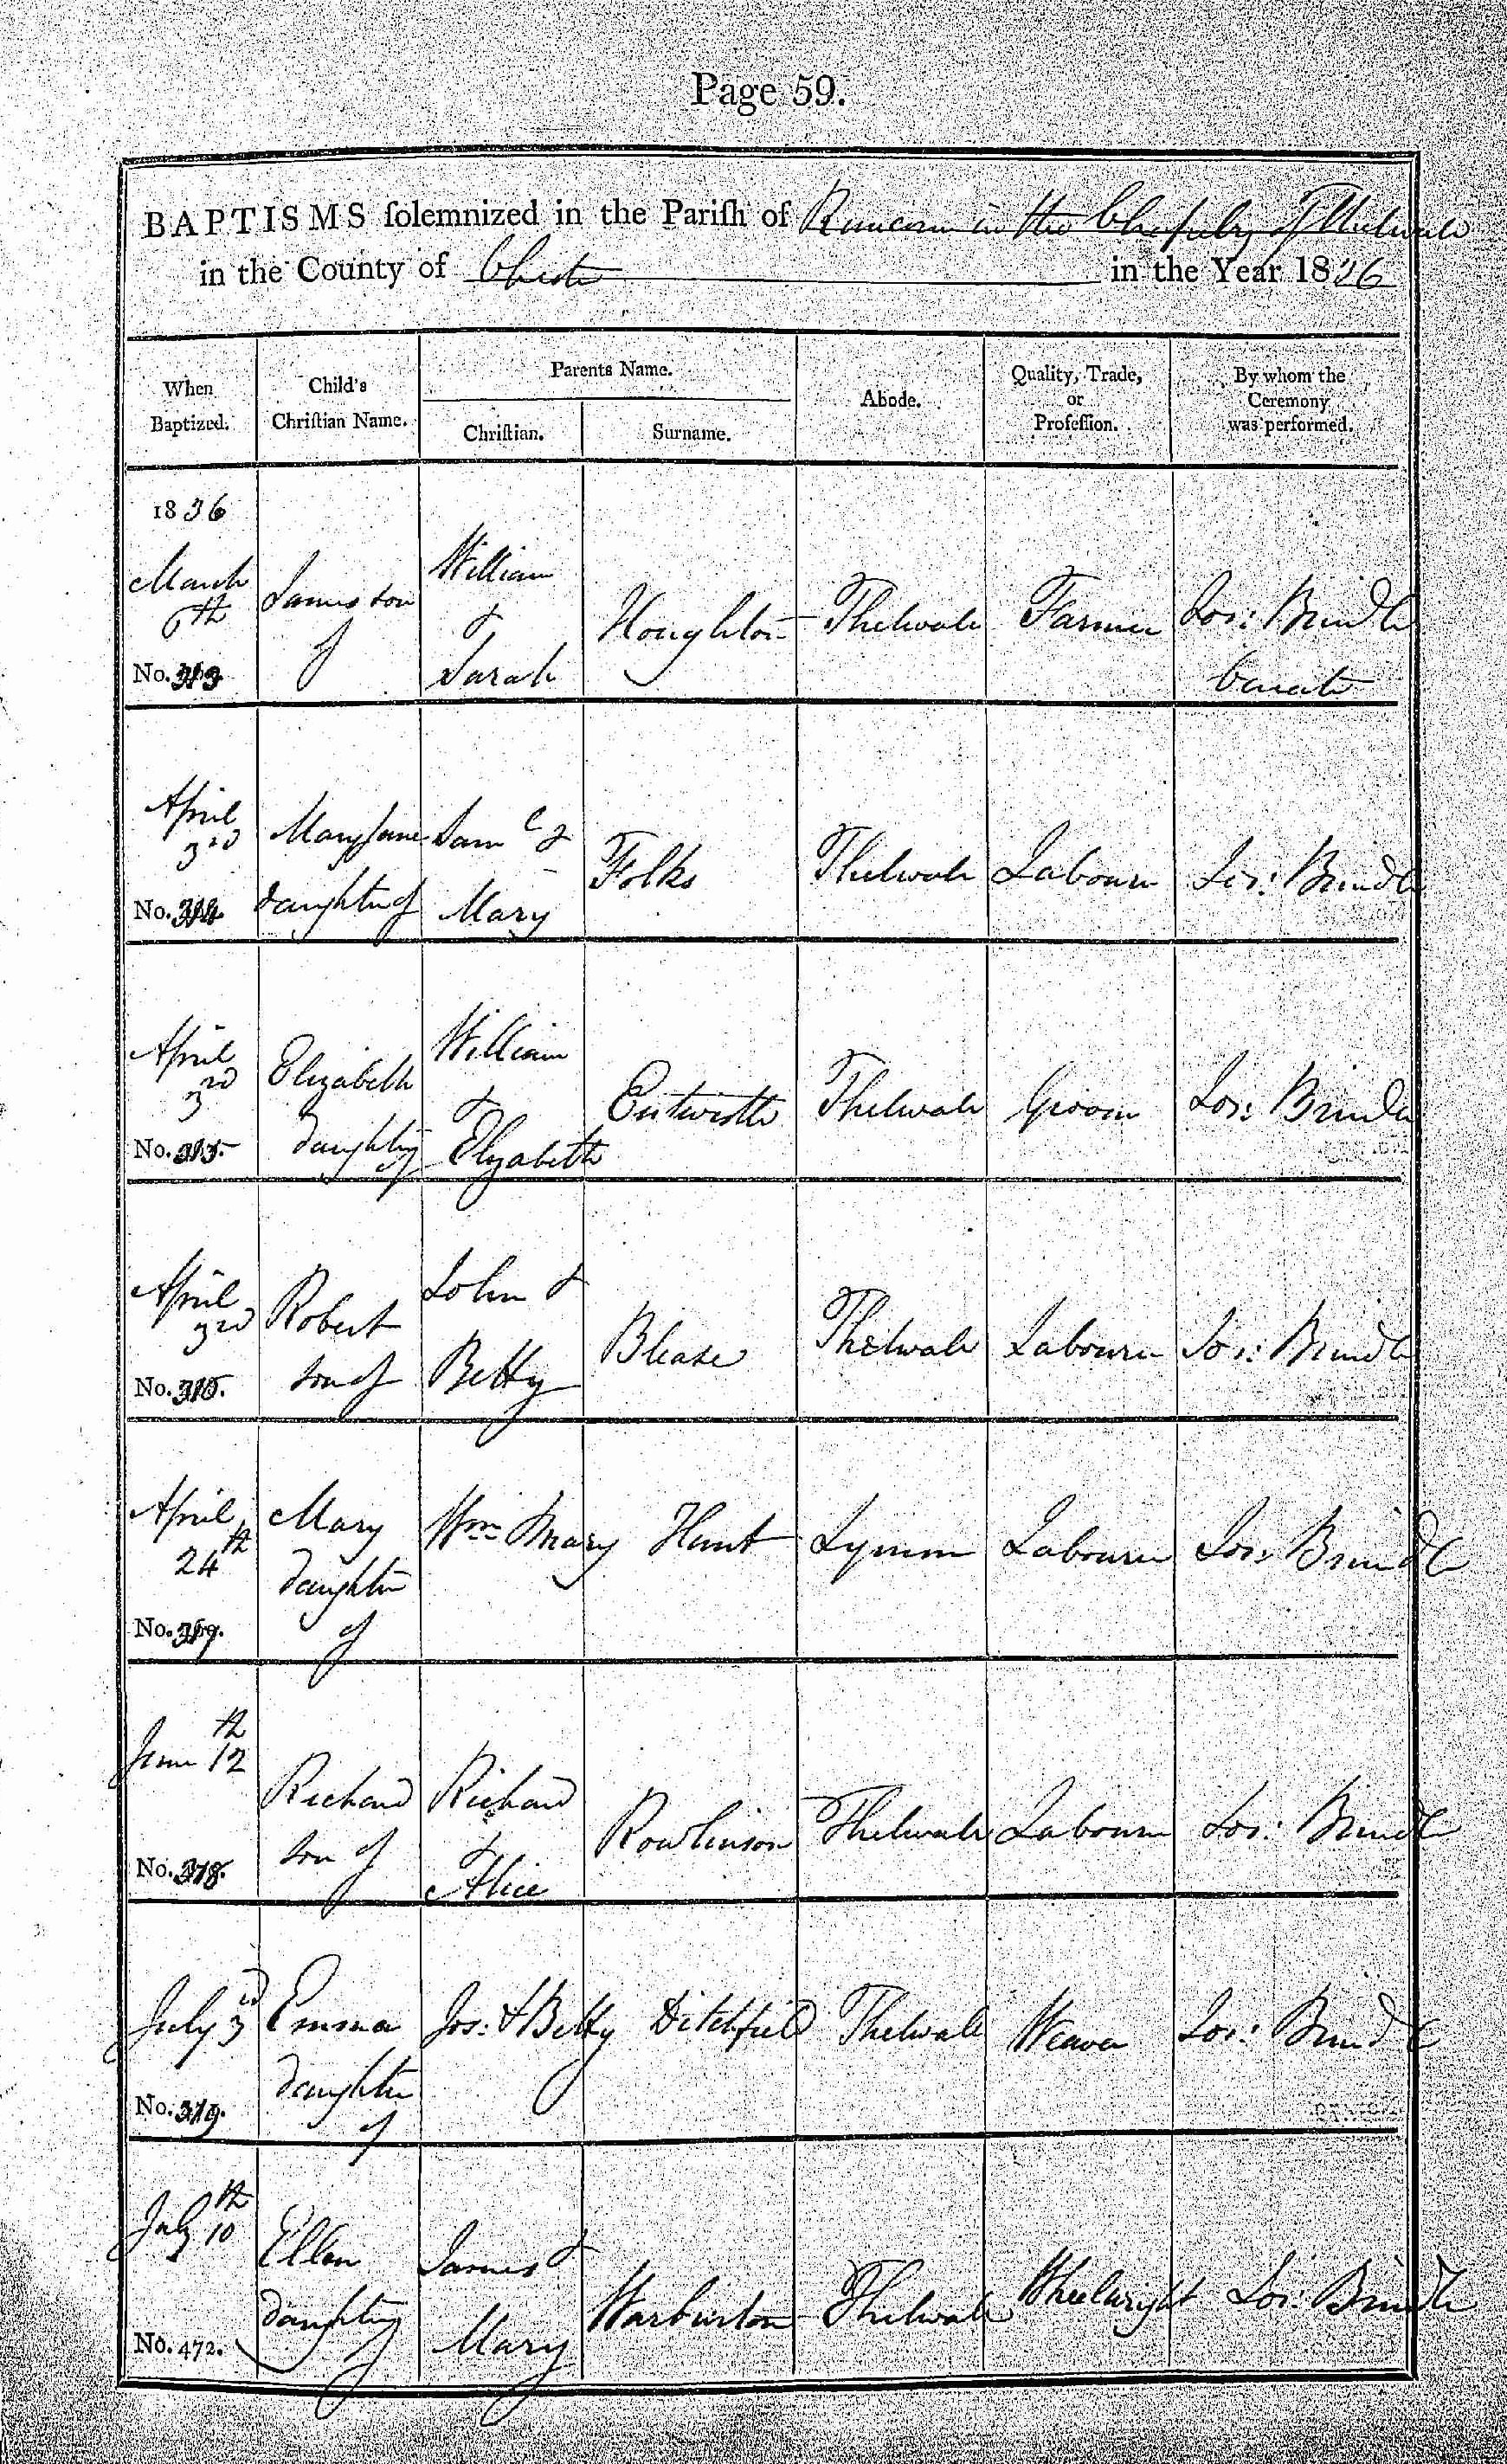 Page 59.
BAPTISMS solemnized in the Parish of Runcorn in the Chapelry of Thelwale
in the County of Chester in the Year 1836
When Baptized.
Child's Christian Name.
Parents Name.
Christian.
Surname.
Abode.
Quality, Trade, or Profession.
By whom the Ceremony was performed.
1836
March 6th
No. 313
James son of
William & Sarah
Houghton
Thelwale
Farmer
Jos: Brindle Curate
April 3rd
No. 314
Mary Jane daughter of
Saml & Mary
Folks
Thelwale
Labourer
Jos: Brindle
April 3rd
No. 315
Elizabeth daughter of
William & Elizabeth
Entwistle
Thelwale
Groom
Jos: Brindle
April 3rd
No. 316.
Robert son of
John & Betty
Blease
Thelwale
Labourer
Jos: Brindle
April 24th
No. 317.
Mary daughter of
Wm & Mary
Hunt
Lymm
Labourer
Jos: Brindle
June 12th
No. 318.
Richard son of
Richard & Alice
Rowlinson
Thelwale
Labourer
Jos: Brindle
July 3rd
No. 319.
Emma daughter of
Jos: & Betty
Ditchfield
Thelwale
Weaver
Jos: Brindle
July 10th
No. 472.
Ellen daughter of
James & Mary
Warburton
Thelwale
Wheelwright
Jos: Brindle